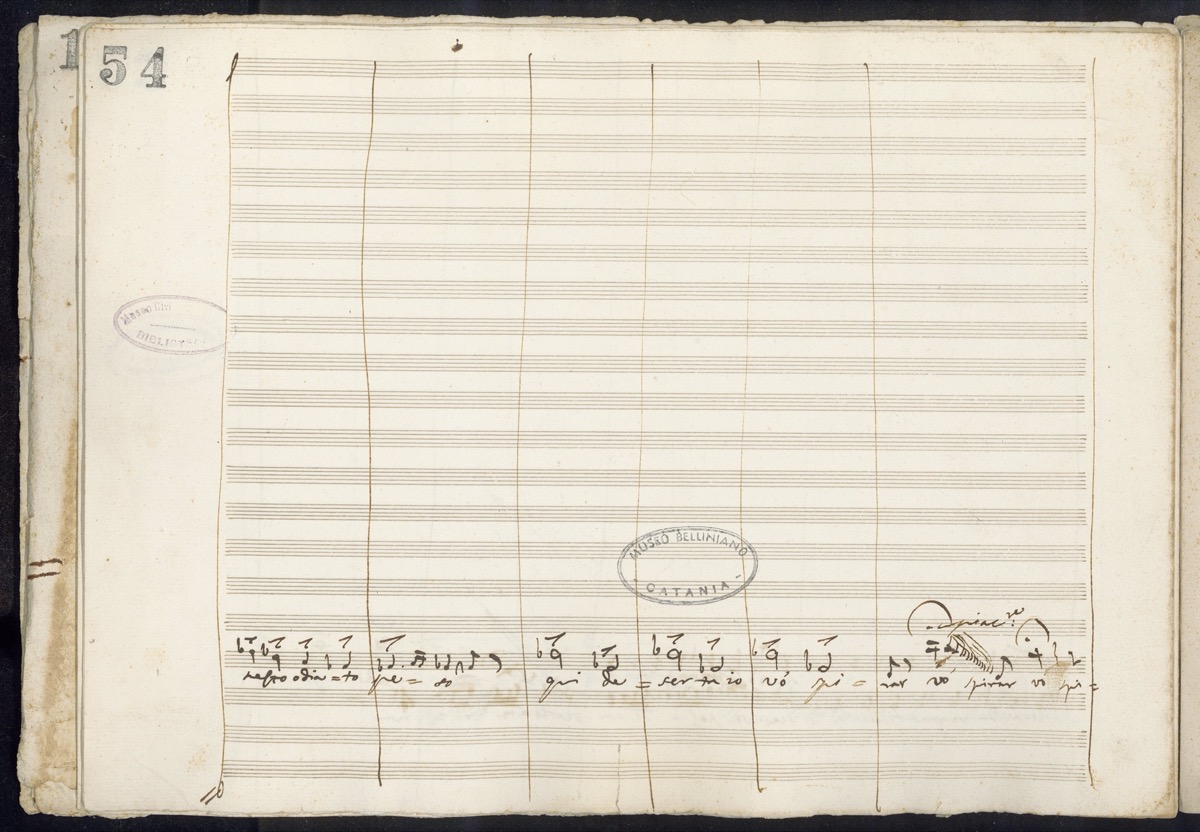 1
54
Museo
BIBLIOTECA
MUSEO BELLINIANO
CATANIA
a piac:re
nesto odia=to pe= so qui de = ser=ta io vó spi = rar vó spirar vò spi=